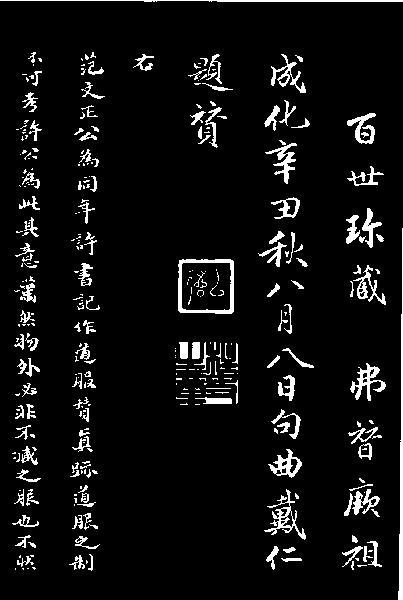 百世珎蔵 弗替厥祖
成化辛丑秋八月八日句曲戴仁
題賛
右
范文正公為同年許書記作道服賛真跡道服之制
不可考許公為此其意蕭然物外必非不滅之服也不然